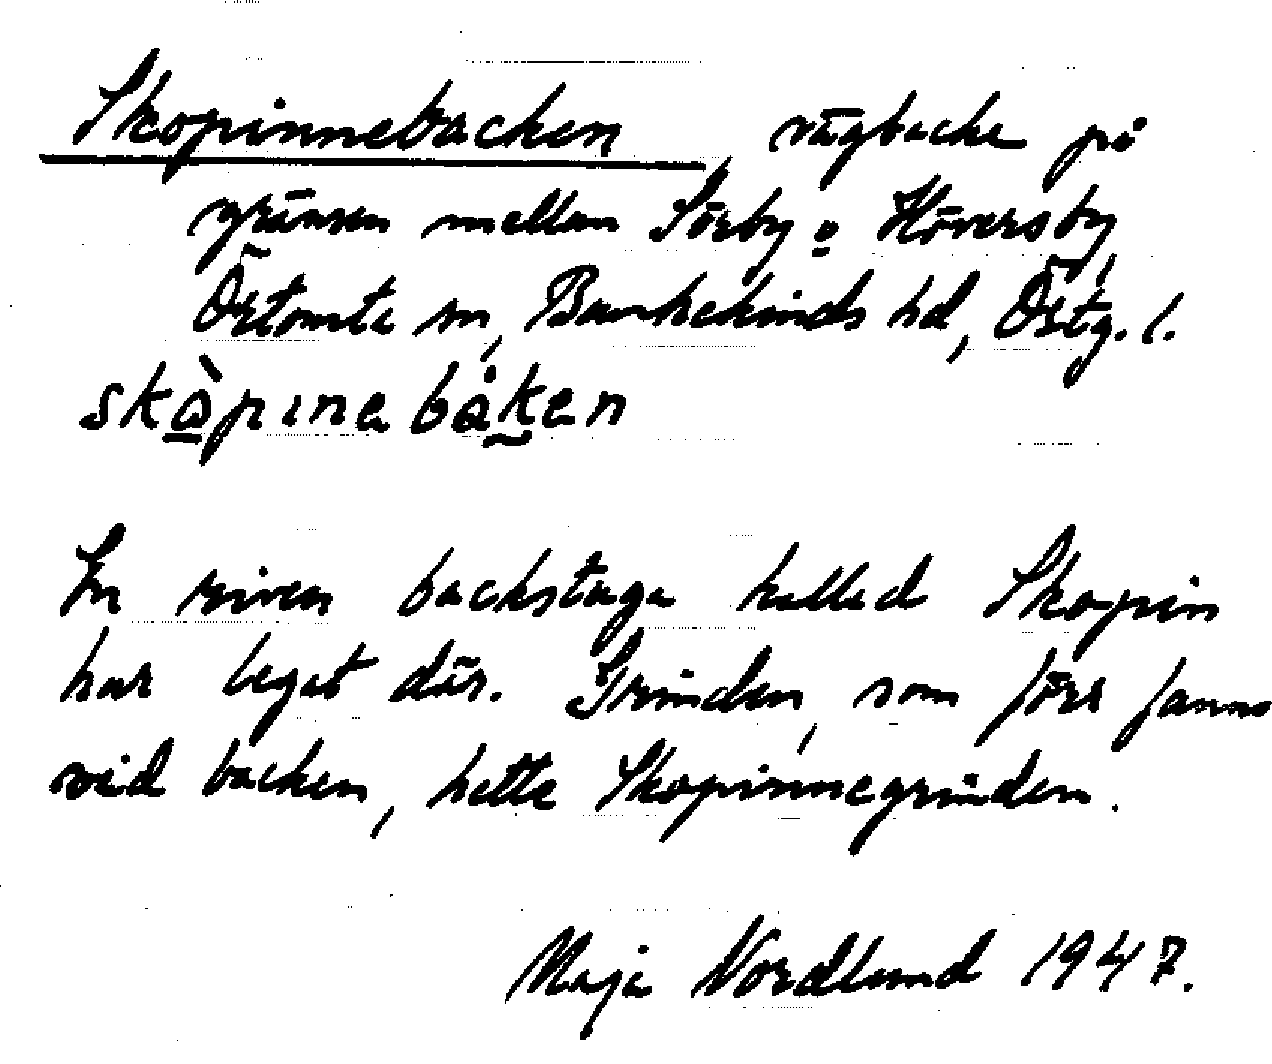 Skopinnebacken, vägbacke på
gränsen mellan Sörby o Höversby,
Östomta sn, Bankekinds hd, Östg. l.
skὰpınebåken
En riven backstuga kallad Skopin
har leget där. Grinden, som förr fanns
vid backen, hette Skopinnegrinden.
Maja Nordlund 1947.